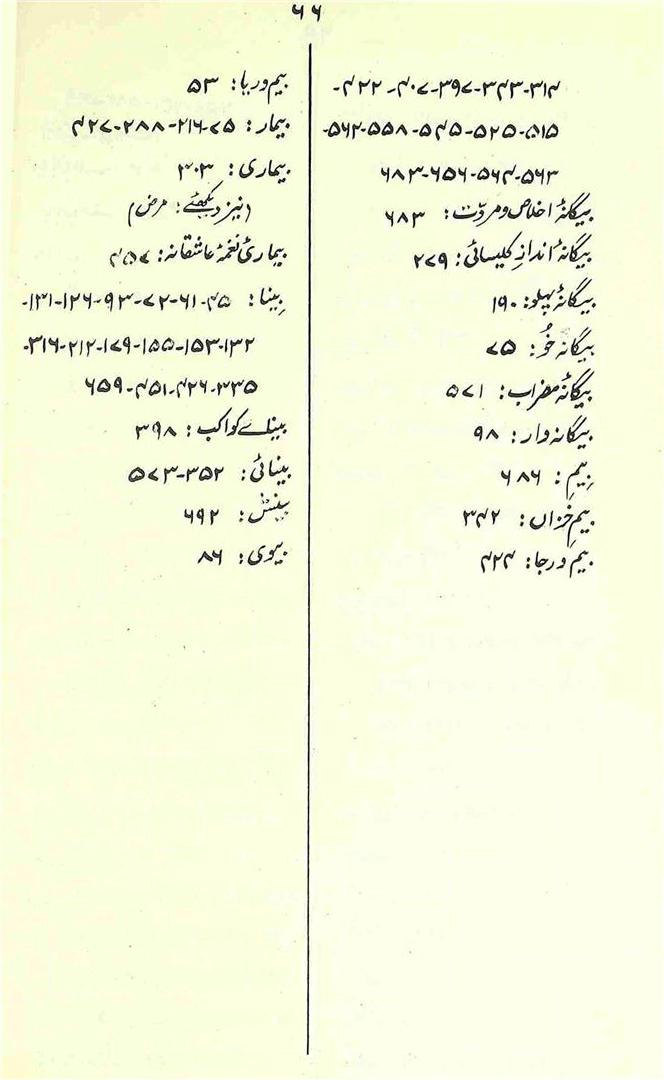 ۶۶
۳۱۴-۳۴۳-۳۹۷-۴۰۷-۴۲۲-
۵۱۵-۵۲۵-۵۴۵-۵۵۸-۵۶۲-
۵۶۳-۵۶۴-۶۵۶-۶۸۳
بیگانۂ اخلاص و مروّت: ۶۸۳
بیگانۂ اندازِ کلیسائی: ۲۷۹
بیگانۂ پہلو: ۱۹۰
بیگانہ خُو: ۷۵
بیگانۂ مضراب: ۵۷۱
بیگانہ وار: ۹۸
بِیم: ۶۸۶
بیمِ خزاں: ۳۴۲
بیم و رجا: ۴۲۴
بیم و ریا: ۵۳
بیمار: ۷۵-۲۱۶-۲۸۸-۴۲۷
بیماری: ۳۰۳
(نیز دیکھئے: مرض)
بیماریٔ نغمۂ عاشقانہ: ۴۵۷
بِینا: ۴۵-۶۱-۷۲-۹۳-۱۲۶-۱۳۱-
۱۳۲-۱۵۳-۱۵۵-۱۷۹-۲۱۲-۳۱۶-
۳۳۵-۴۲۶-۴۵۱-۶۵۹
بینائے کواکب: ۳۹۸
بینائی: ۳۵۲-۵۷۳
بینش: ۶۹۲
بیوی: ۸۶